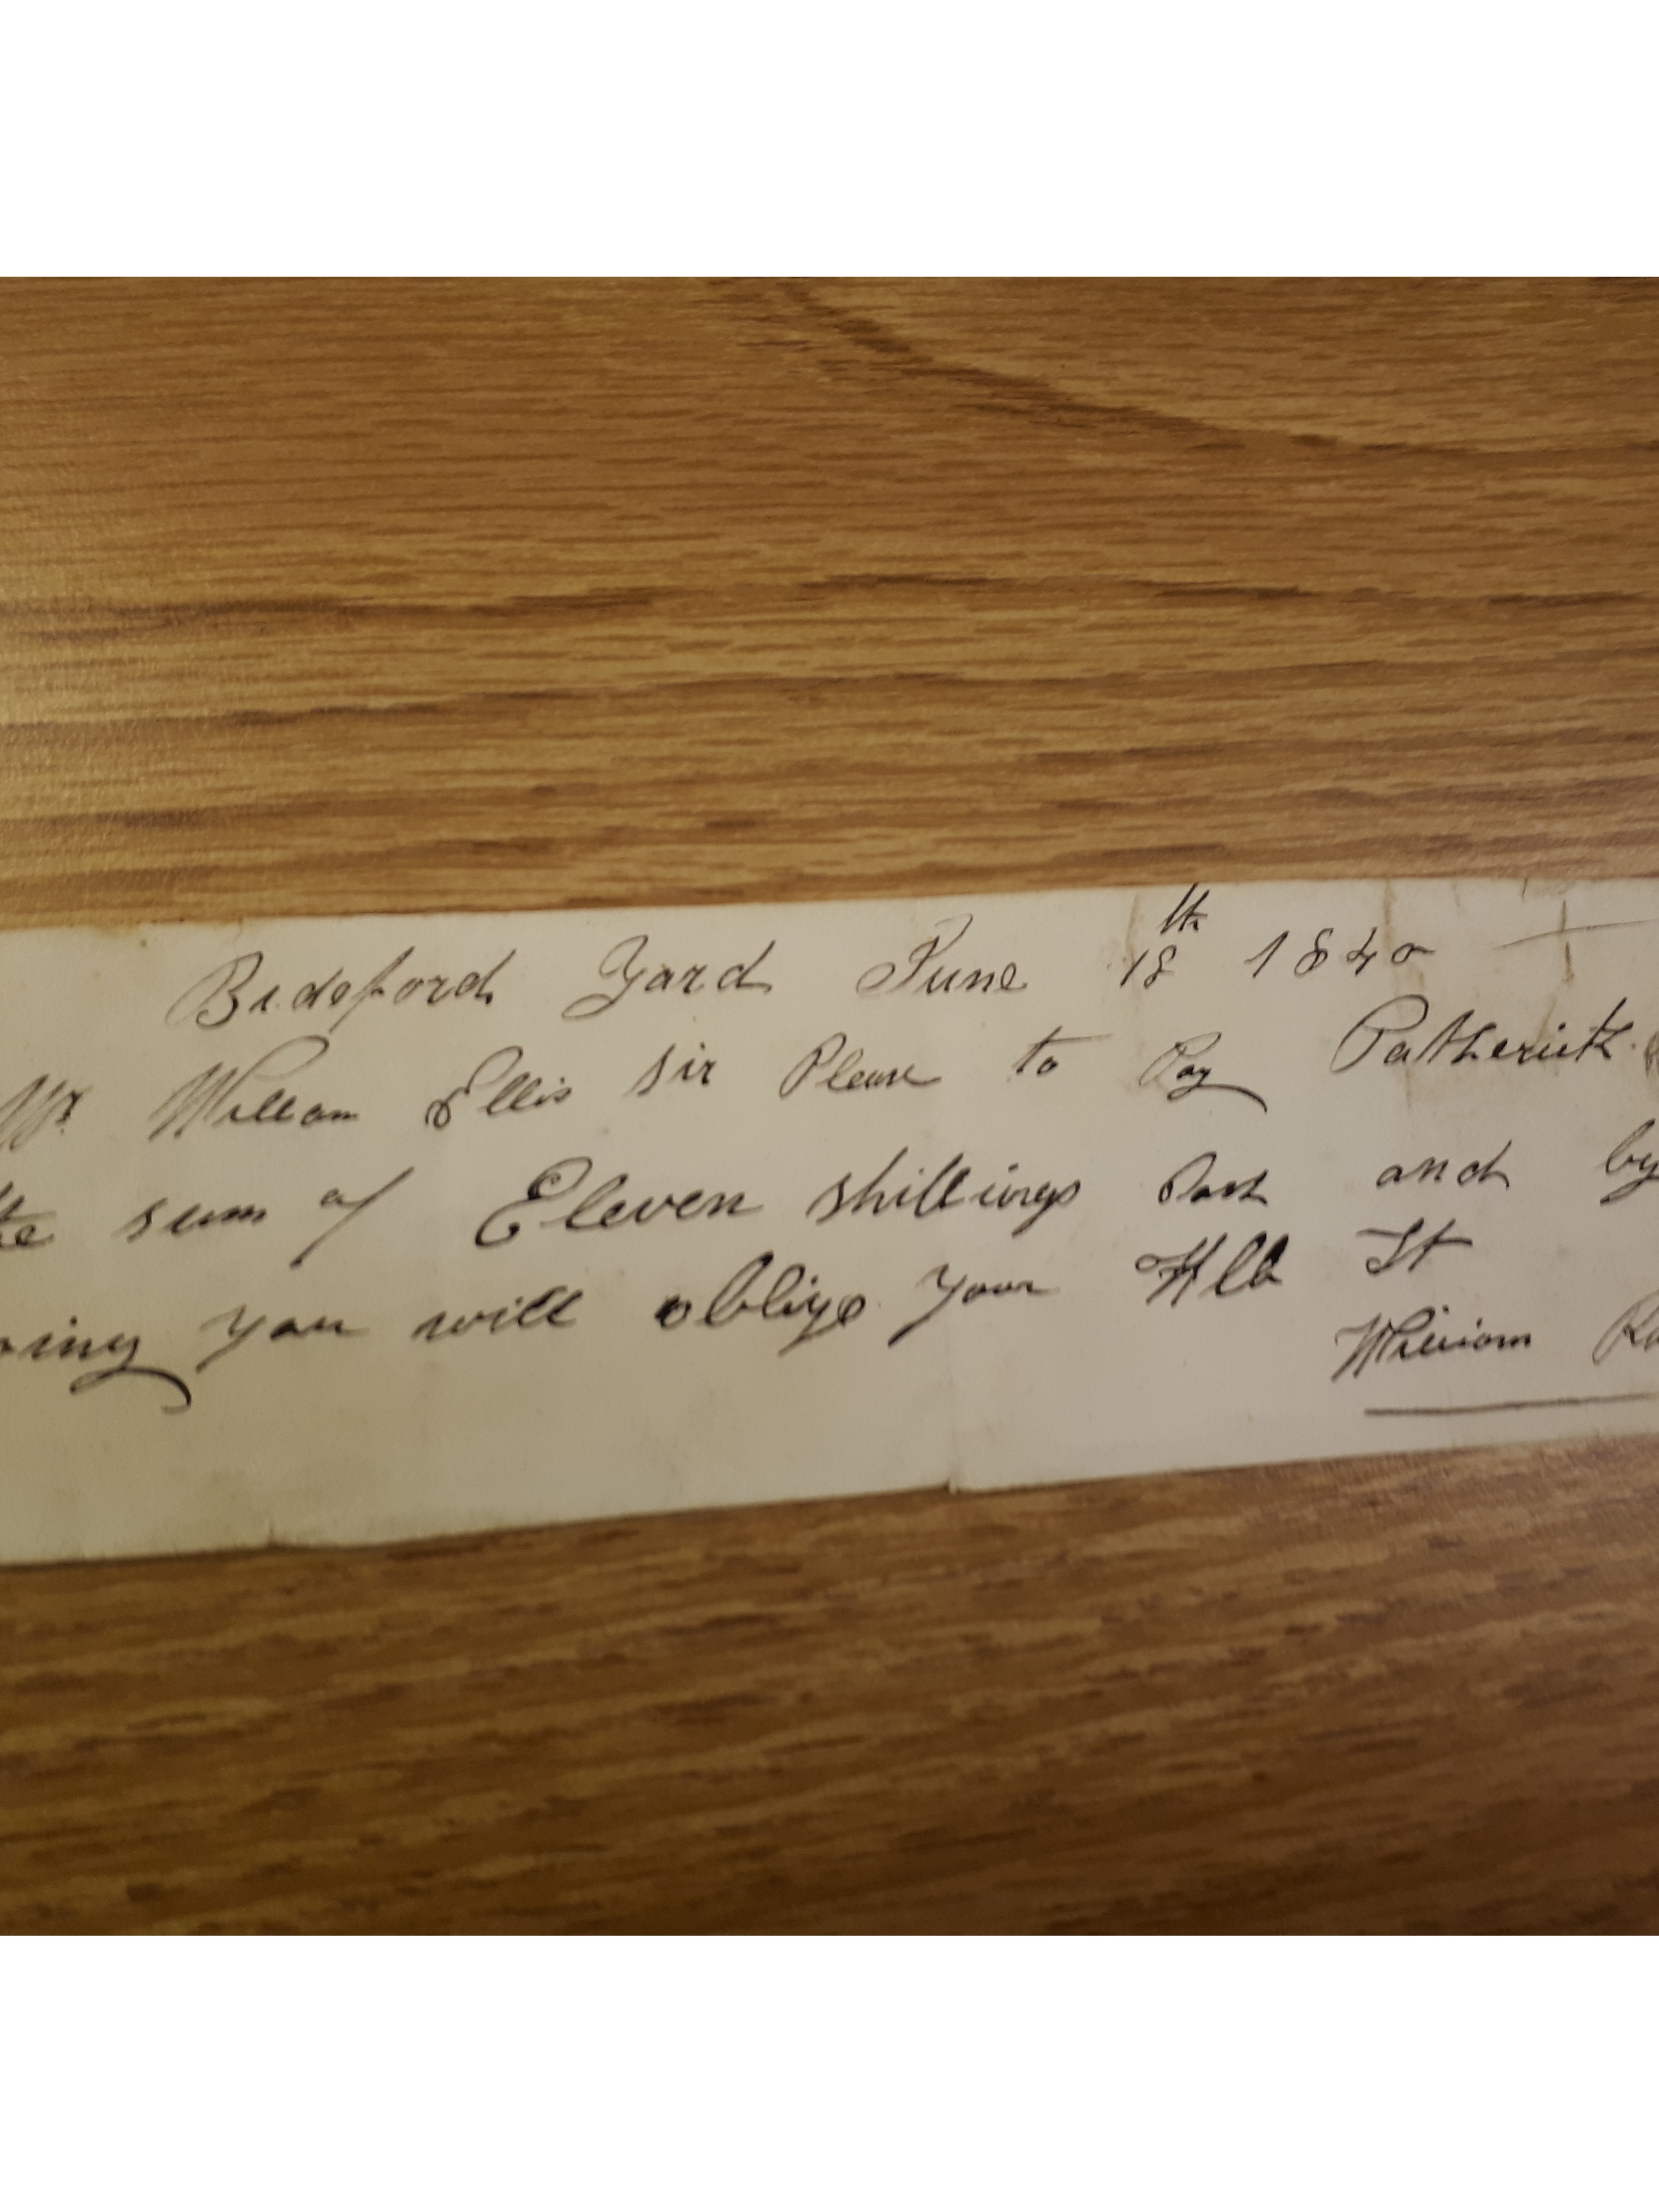 Bideford Yard June 18th 1840
Mr William Ellis sir Please to Pay Patherick
the sum of Eleven shillings and by
oing you will oblige your Hlb St
William